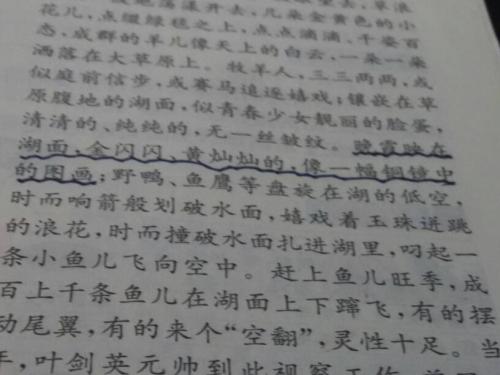 花儿,点缀绿毯之上,点点滴滴,千姿百
态,成群的羊儿像天上的白云,一朵一朵
洒落在大草原上。牧羊人,三三两两,或
似庭前信步,或赛马追逐嬉戏;镶嵌在草
原腹地的湖面,似青春少女靓丽的脸蛋,
清清的、纯纯的,无一丝皱纹。晚霞映在
湖面,金闪闪、黄灿灿的,像一幅铜镜中
的图画;野鸭、鱼鹰等盘旋在湖的低空,
时而响箭般划破水面,嬉戏着玉珠迸跳
的浪花,时而撞破水面扎进湖里,叼起一
条小鱼儿飞向空中。赶上鱼儿旺季,成
百上千条鱼儿在湖面上下蹿飞,有的摆
动尾翼,有的来个“空翻”,灵性十足。当
年,叶剑英元帅到此视察工作